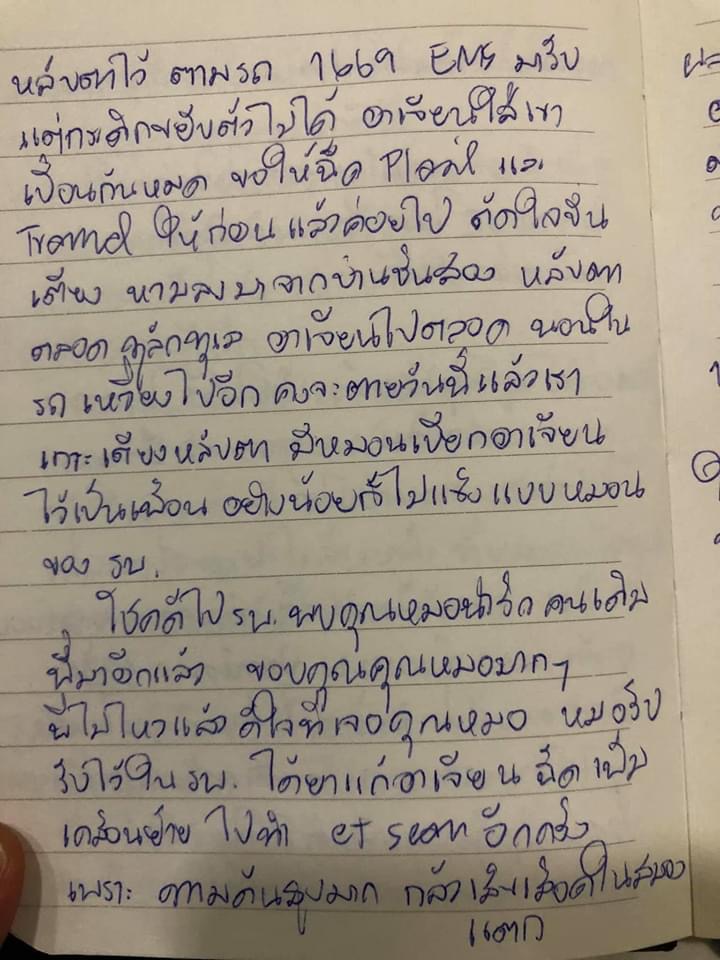 หลับตาไว้ ตามรถ 1669 EMS มารับ
แต่กระดิกขยับตัวไม่ได้ อาเจียนใส่เขา
เปื้อนกันหมด ขอให้ฉีด Plasil และ
Tramol ให้ก่อน แล้วค่อยไป ตัดใจขึ้น
เตียง หามลงมาจากบ้านชั้นสอง หลับตา
ตลอด ทุลักทุเล อาเจียนไปตลอด นอนใน
รถ เหวี่ยงไปอีก คงจะตายวันนี้แล้วเรา
เกาะเตียงหลับตา มีหมอนเปียกอาเจียน
ไว้เป็นเพื่อน อย่างน้อยก็ไม่แข็งแบบหมอน
ของ รพ.
โชคดีไป รพ. พบคุณหมอน่ารัก คนเดิม
พี่มาอีกแล้ว ขอบคุณคุณหมอมากๆ
พี่ไม่ไหวแล้ว ดีใจที่เจอคุณหมอ หมอรีบ
รับไว้ใน รพ. ได้ยาแก้อาเจียน ฉีด เพิ่ม
เคลื่อนย้าย ไปทำ ct scan อีกครั้ง
เพราะ ความดันสูงมาก กลัวเส้นเลือดในสมอง
แตก